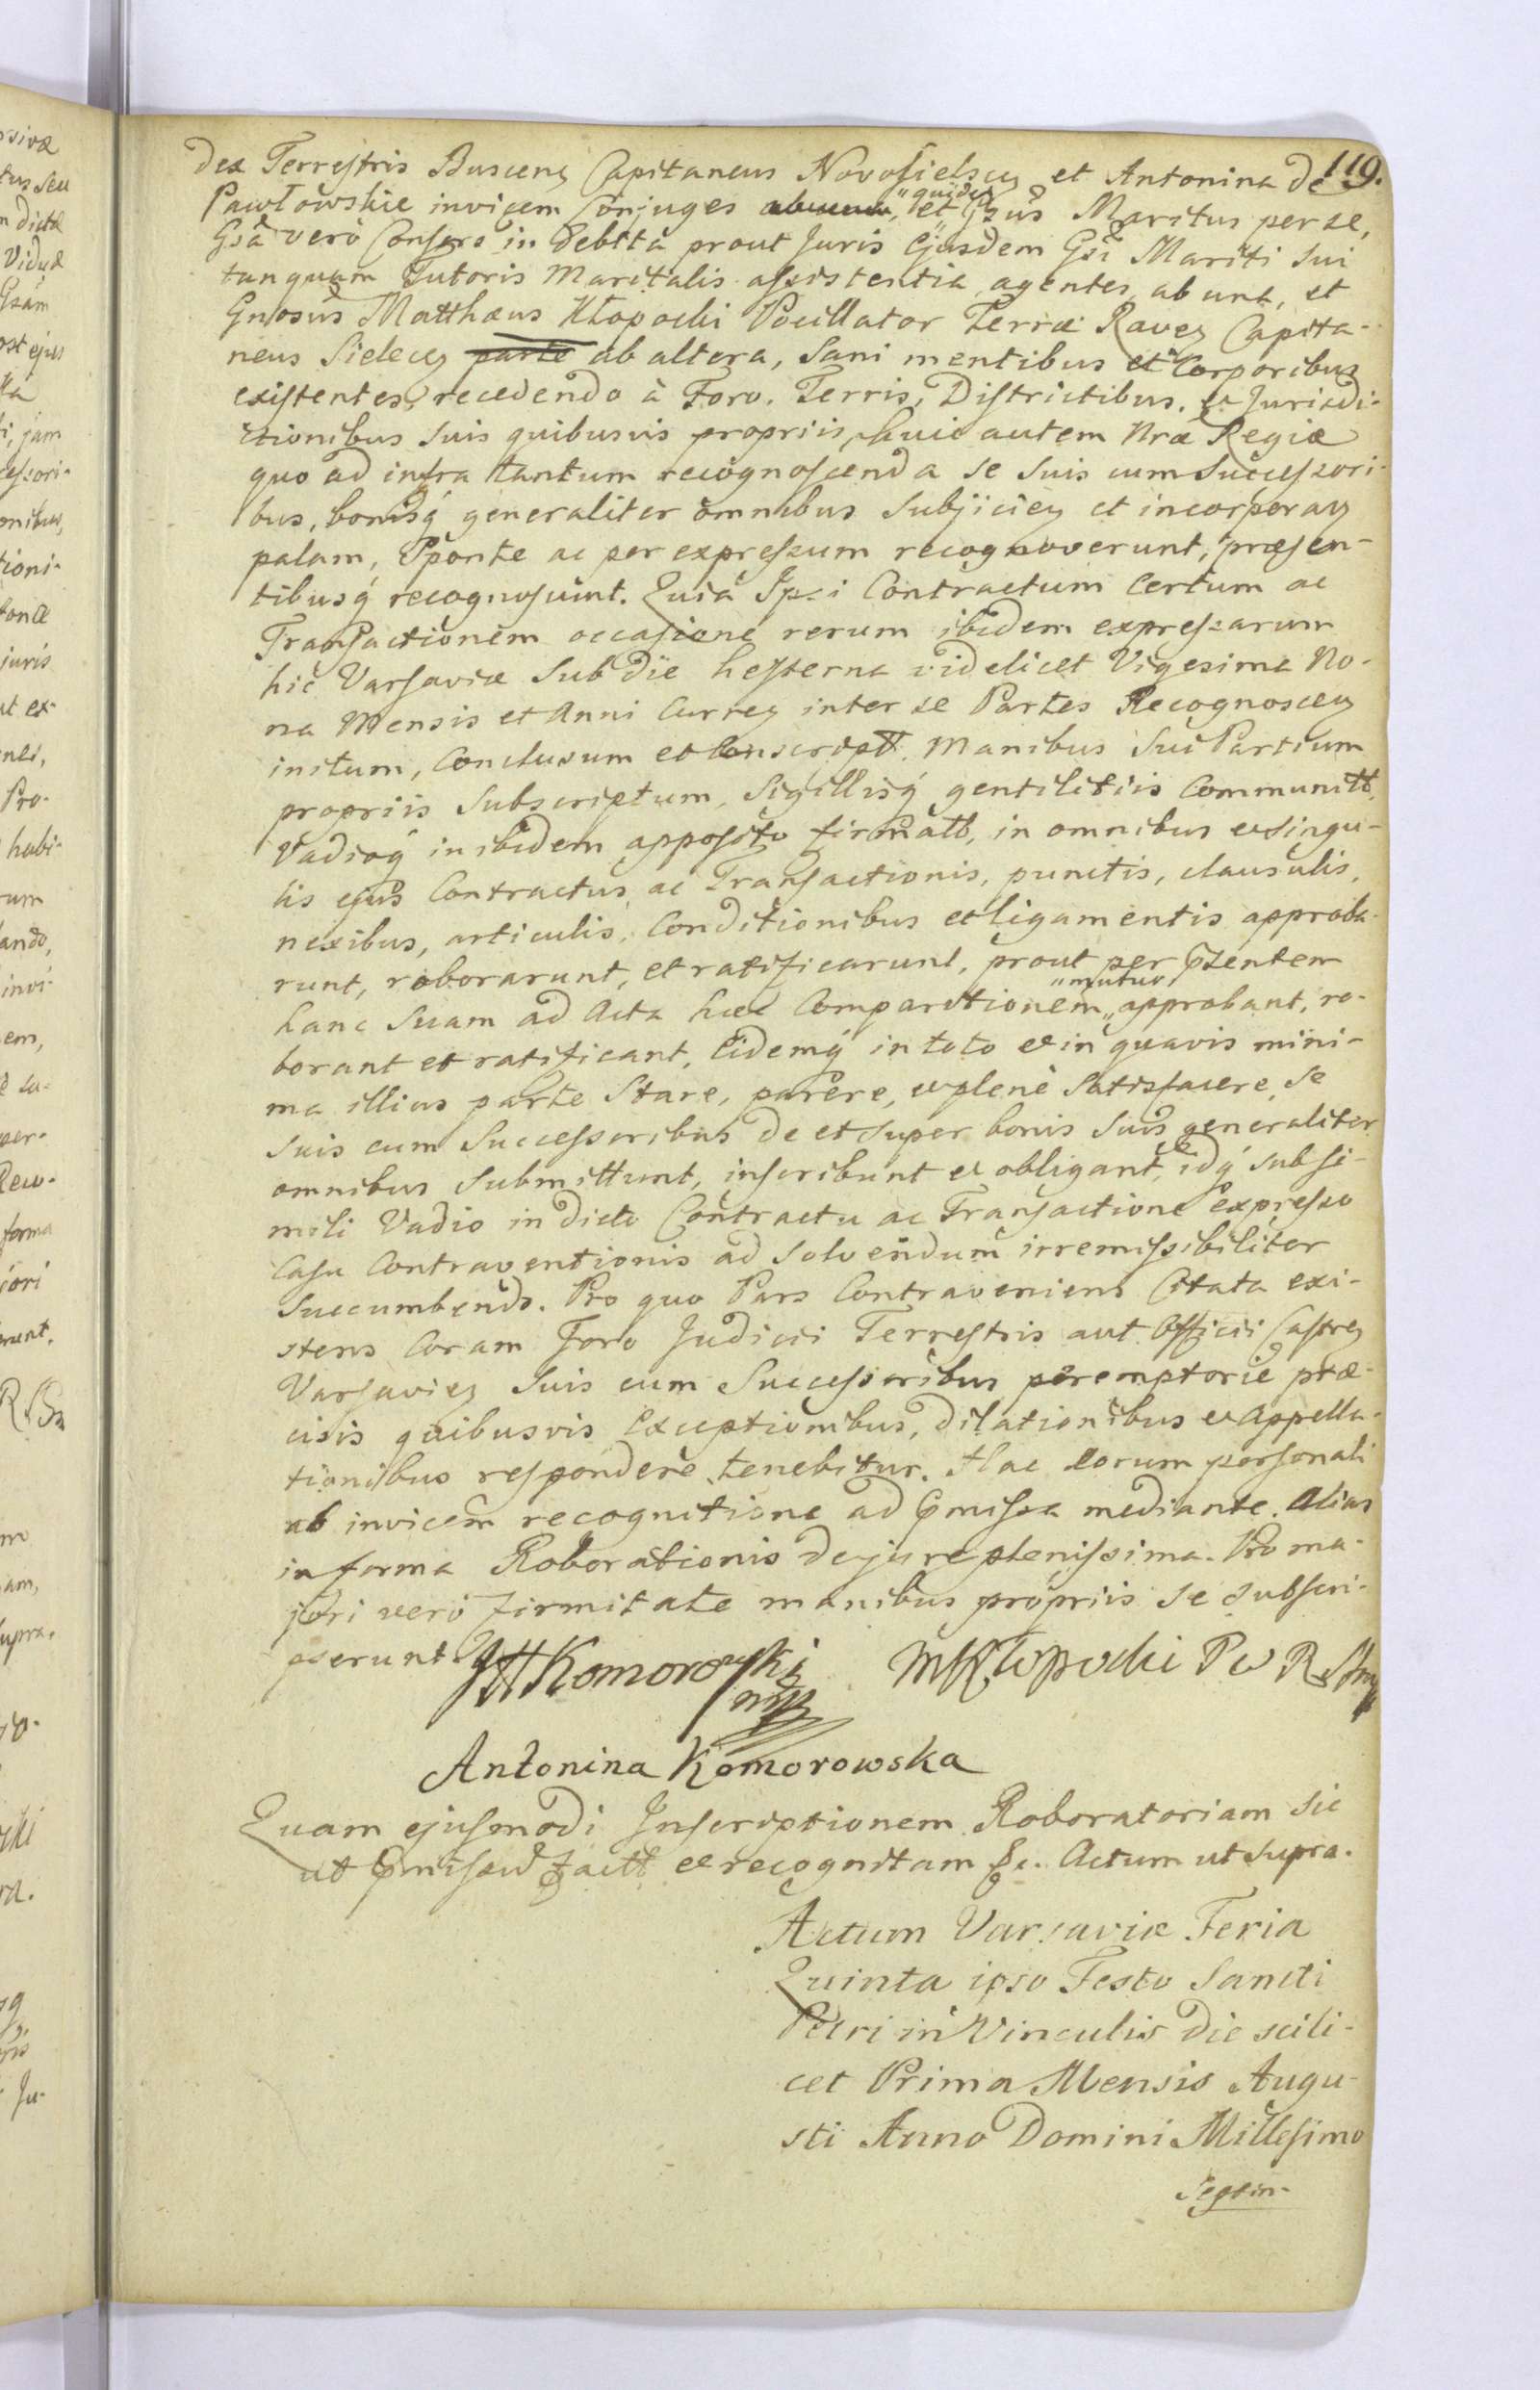 119.
dex Terrestris Buscen Capitaneus Novosielscen et Antonina de
Pawłowskie invicem Conjuges "quidem et Gsus Maritus per se,
Gsa verò Consors in debita prout Juris Ejusdem Gsi Mariti sui
tanquam Tutoris Maritalis assistentia agentes ab una, et
Gnosus Matthæus Kłopocki Pocillator Terræ Raven Capita-
neus Sielecen parte ab altera, Sani mentibus et Corporibus
existentes, recedendo à Foro, Terris, Districtibus, et Jurisdi-
ctionibus suis quibusvis propriis, huic autem Nræ Regiæ
quo ad infra tantum recognoscenda se suis cum Successori-
bus, bonisq generaliter omnibus Subjicien et incorporan
palam, Sponte ac per expressum recognoverunt, præsen-
tibusq recognoscunt. Quia Ipsi Contractum Certum ac
Transactionem occasione rerum ibidem expressarum
hic Varsaviæ Sub die hesterna videlicet Vigesima No-
na Mensis et Anni Curren inter se Partes Recognoscen
initum, Conclusum et Conscriptt. Manibus Sui Partium
propriis Subscriptum, Sigillisq gentilitiis Communitt,
Vadioq inibidem apposito firmatt, in omnibus et singu-
lis ejus Contractus ac Transactionis, punctis, clausulis,
nexibus, articulis, Conditionibus et ligamentis approba-
runt, roborarunt, et ratificarunt, prout per pzentem
hanc Suam ad Acta hæc Comparitionem "mutuo" approbant, ro-
borant et ratificant, Eidemq in toto et in quavis mini-
ma illius parte Stare, parere, et plenè Satisfacere, se
suis cum Successoribus de et super bonis suis generaliter
omnibus Submittunt, inscribunt et obligant, idq sub si-
mili Vadio in dicto Contractu ac Transactione Expresso
Casu Contraventionis ad solvendum irremissibiliter
Succumbendo. Pro quo Pars Contraveniens Citata exi-
stens Coram Foro Judicii Terrestris aut Officii Castren
Varsavien Suis cum Successoribus peremptorie præ-
cisis quibusvis Exceptionibus, dilationibus et appella-
tionibus respondere tenebitur. Hac Eorum personali
ab invicem recognitione ad pmissa mediante. Alias
in forma Roborationis de jure plenissima. Pro ma-
jori verò firmitate manibus propriis se subscri-
pserunt. JHKomorowski mp MKłopocki P W R
Antonina Komorowska
Quam ejusmodi Inscriptionem Roboratoriam sic
ut pmissum factt et recognitam &c. Actum ut supra.
Actum Varsaviæ Feria
Quinta ipso Festo Sancti
Petri in Vinculis die scili-
cet Prima Mensis Augu-
sti Anno Domini Millesimo
Septin-